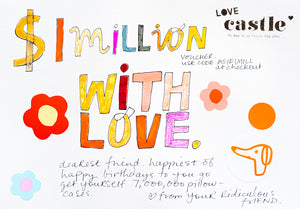 $1 MILLION
LOVE
castle
VOUCHER.
USE CODE
at checkout
WITH
LOVE.
dearest friend. happiest of
happy birthdays to you go
get yourself 7,000,000 pillow-
cases.
from your Ridiculous
FRIEND.